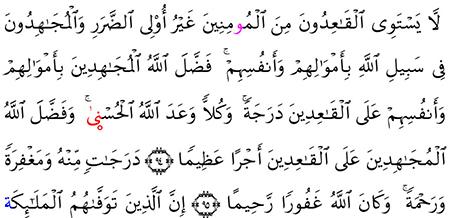 لَّا يَسْتَوِى ٱلْقَـٰعِدُونَ مِنَ ٱلْمُومِنِينَ غَيْرُ أُوْلِى ٱلضَّرَرِ وَٱلْمُجَـٰهِدُونَ
فِى سَبِيلِ ٱللَّهِ بِأَمْوَٰلِهِمْ وَأَنفُسِهِمْ ۚ فَضَّلَ ٱللَّهُ ٱلْمُجَـٰهِدِينَ بِأَمْوَٰلِهِمْ
وَأَنفُسِهِمْ عَلَى ٱلْقَـٰعِدِينَ دَرَجَةً ۚ وَكُلًّا وَعَدَ ٱللَّهُ ٱلْحُسْنىٰ ۚ وَفَضَّلَ ٱللَّهُ
ٱلْمُجَـٰهِدِينَ عَلَى ٱلْقَـٰعِدِينَ أَجْرًا عَظِيمًا ﴿٩٤﴾ دَرَجَـٰتٍ مِّنْهُ وَمَغْفِرَةً
وَرَحْمَةً ۚ وَكَانَ ٱللَّهُ غَفُورًا رَّحِيمًا ﴿٩٥﴾ إِنَّ ٱلَّذِينَ تَوَفَّىٰهُمُ ٱلْمَلَـٰٓئِكَة